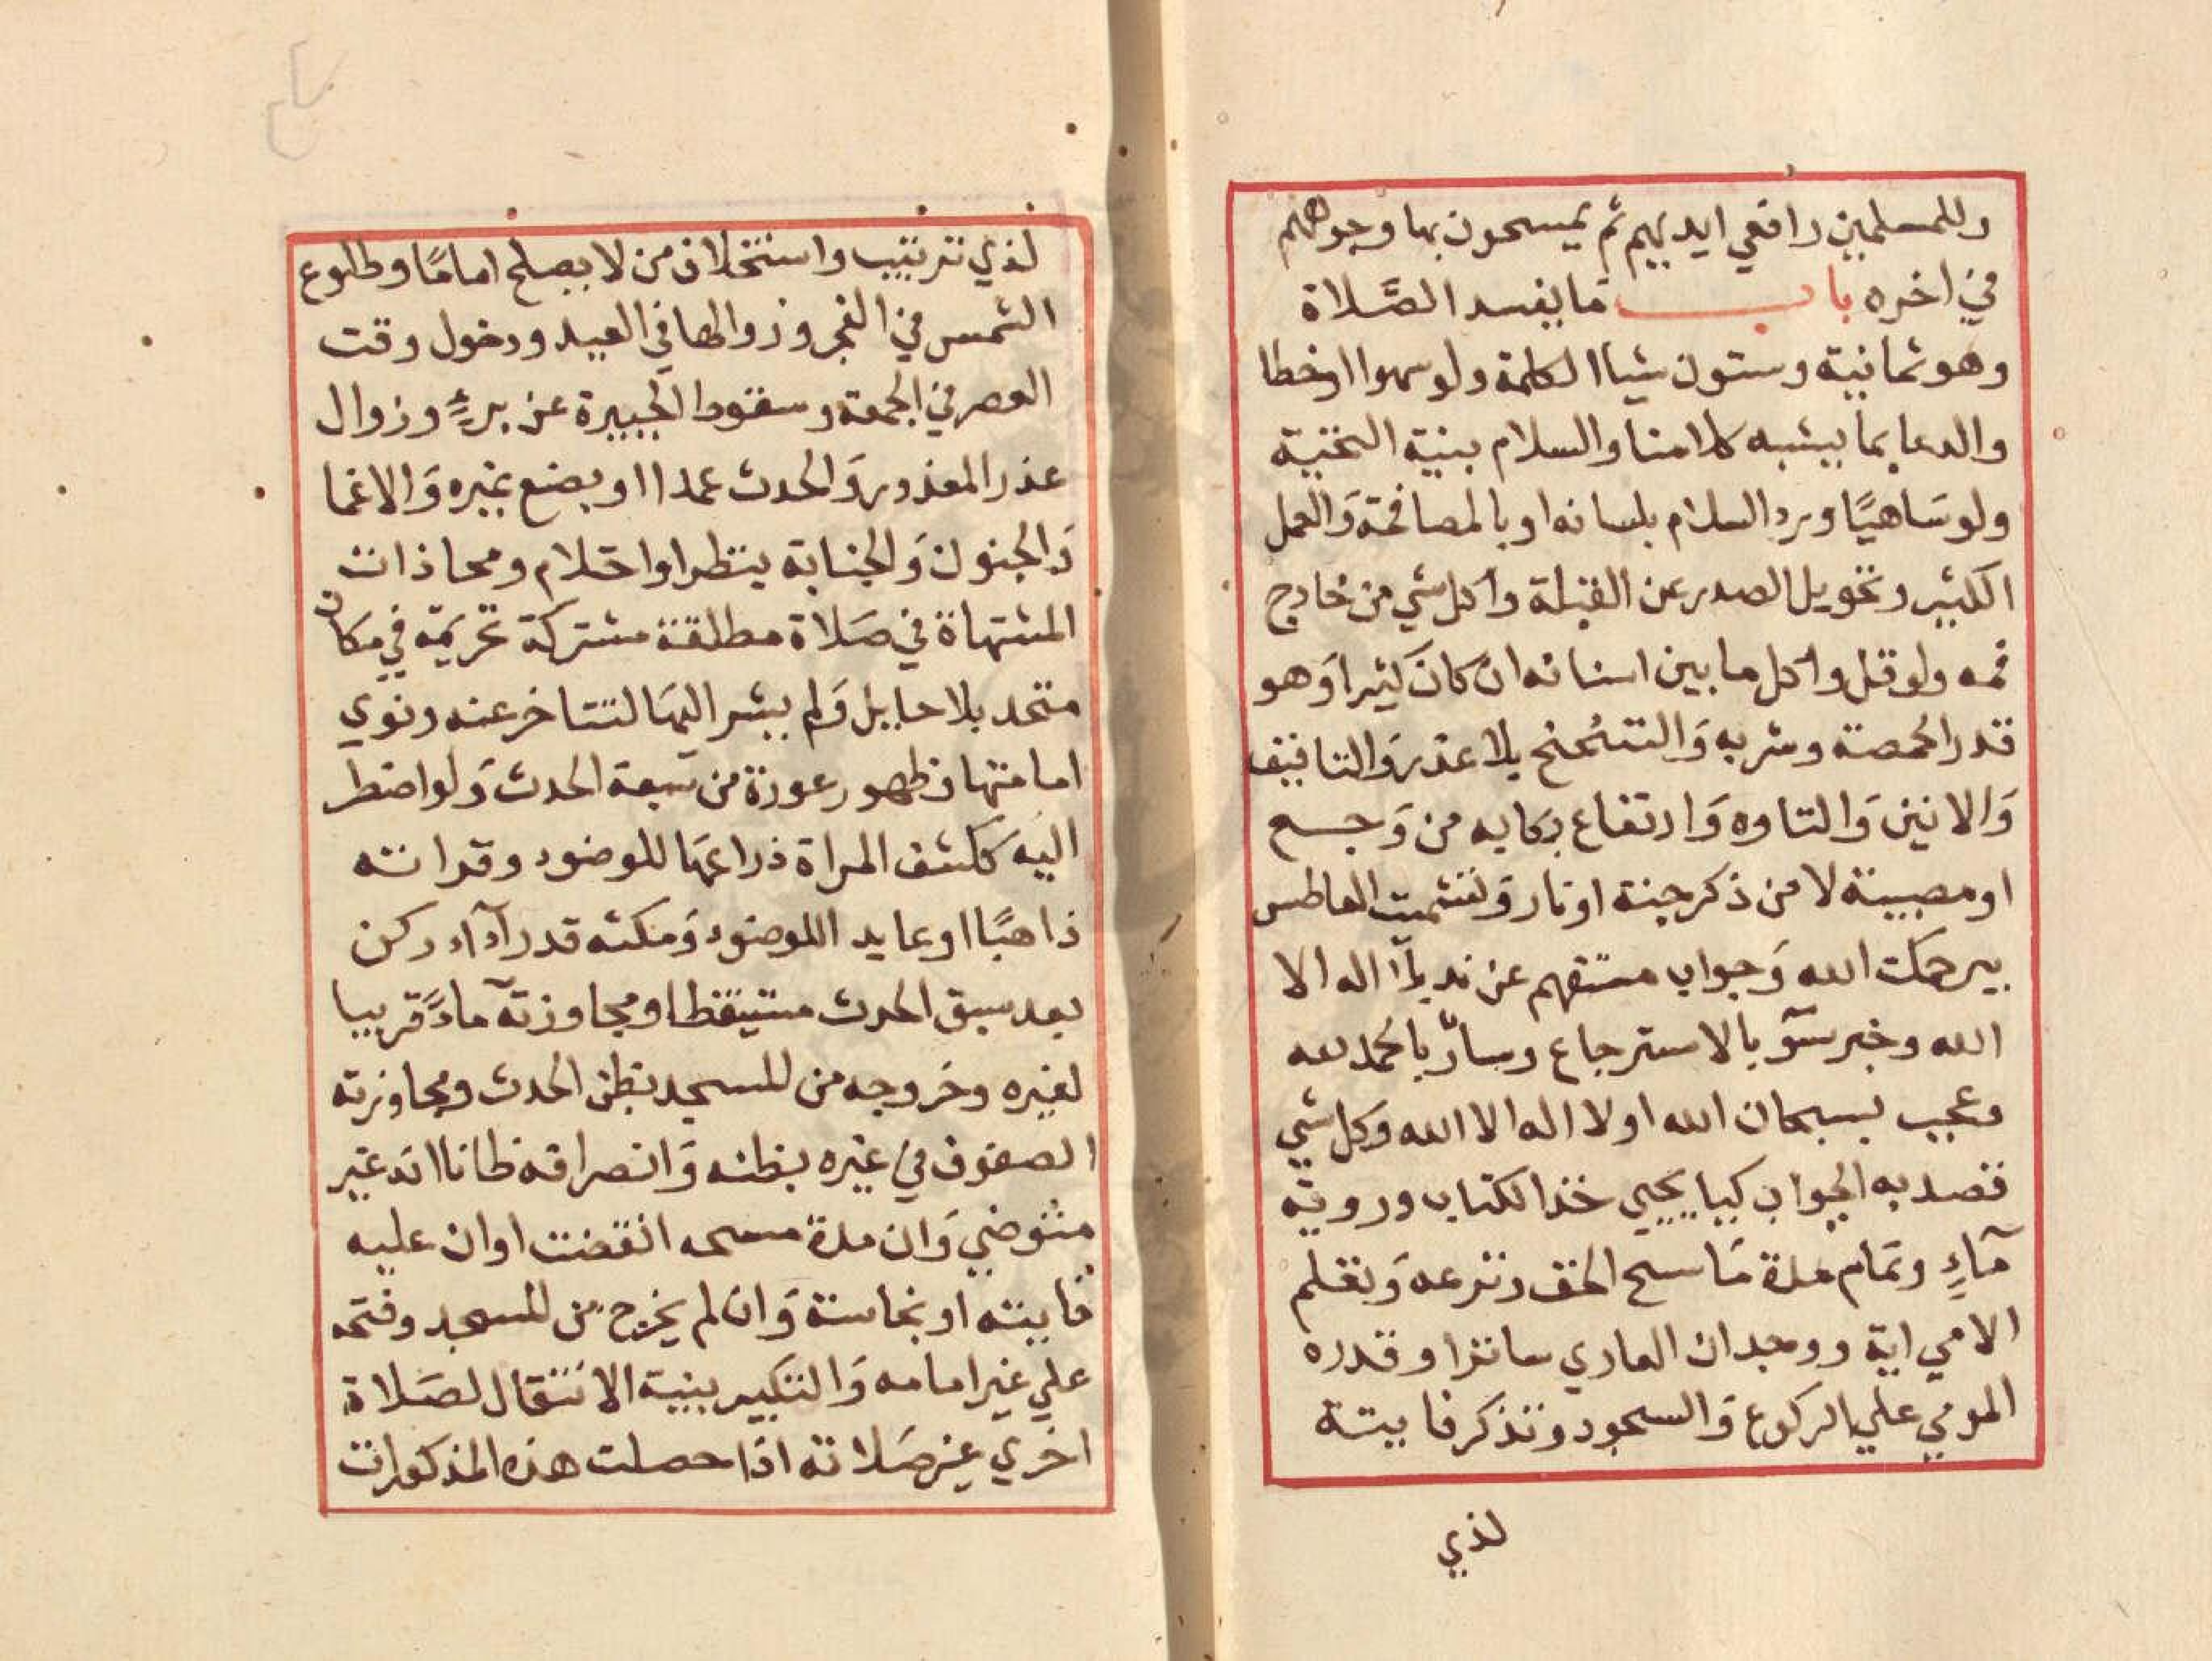 وللمسلمين رافعي ايديهم ثم يمسحون بها وجوههم
في اخره باب ما يفسد الصَّلاة
وهو ثمانية وستون شياا الكلمة ولو سهوا اوخطا
والدعا بما يشبه كلامنا والسلام بنية التحية
ولو سَاهيًا ورد السلام بلسانه او بالمصافحة وَالعمل
الكثير وتحويل الصدر عن القبلة واكل شي من خارج
فمه ولو قل واكل ما بين اسنانه ان كانَ كثيرا وَهو
قدر الحمصة وشربه وَالتنحنح بلا عذر وَالتافيف
وَالانين وَالتاوه وَارتفاع بكايه من وَجع
او مصيبة لا من ذكر جنة او نار وَتشميت العاطس
بيرحمك الله وَجواب مستفهم عن ند بلآ اله الا
الله وخبر سوٓ بالاسترجاع وسارّ بالحمد لله
وعجب بسبحان الله او لا اله الا الله وكل شي
قصد به الجواب كيا يحيي خذ الكتاب ورويته
مآءٍ وتمام مدة مَاسح الخف ونزعه وَتعلم
الامي اية ووجدان العاري ساترا وقدره
المومي علي الركوع وَالسجود وتذكر فايتة
لذي
لذي ترتيب واستخلاف من لا يصلح امامًا وطلوع
الشمس في الفجر وزوالها في العيد ودخول وقت
العصر في الجمعة وسقوط الجبيرة عن برءٍ وزوال
عذر المعذور وَالحدث عمدا او بصنع غيره وَالاغما
وَالجنون وَالجنابة بنظر او احتلام ومحاذات
المشتهاة في صَلاة مطلقة مشتركة تحريمة في مكان
متحد بلا حايل وَلم يشر اليهَا لتتاخر عنه ونوي
امامتها وظهور عورة من سبقه الحدث وَلو اضطر
اليه ككشف المراة ذراعهَا للوضوء وقراته
ذاهبًا او عايد اللوضوء وَمكثه قدر آدآء ركن
بعد سبق الحدث مستيقظا ومجاوزتهٓ مآءً قريبا
لغيره وخروجه من المسجد بظن الحدث ومجاوزته
الصفوف في غيره بظنه وَانصرافه ظانا انه غير
متوضي وَان مدة مسحه انقضت او ان عليه
فايتة او نجاسة وَان لم يخرج من المسجد وفتحه
علي غير امامه وَالتكبير بنية الانتقال لصَلاة
اخري غير صَلاته اذا حصلت هذه المذكورات